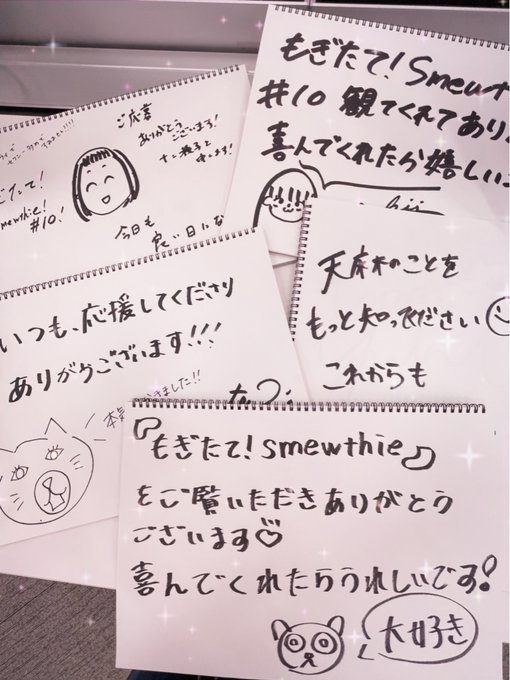 もぎたて！Smewt
#10 観てくれてあり
喜んでくれたら嬉しい
ご応募
ありがとう
ございます！
mewthie!
#10!
今日も
良い日にな
いつも、応援してくださり
ありがうございます!!!
きました!!
天麻木のことを
もっと知ってください
これからも
『もぎたて！smewthie』
をご覧いただきありがとう
ございます♡
喜んでくれたらうれしいです！
大好き